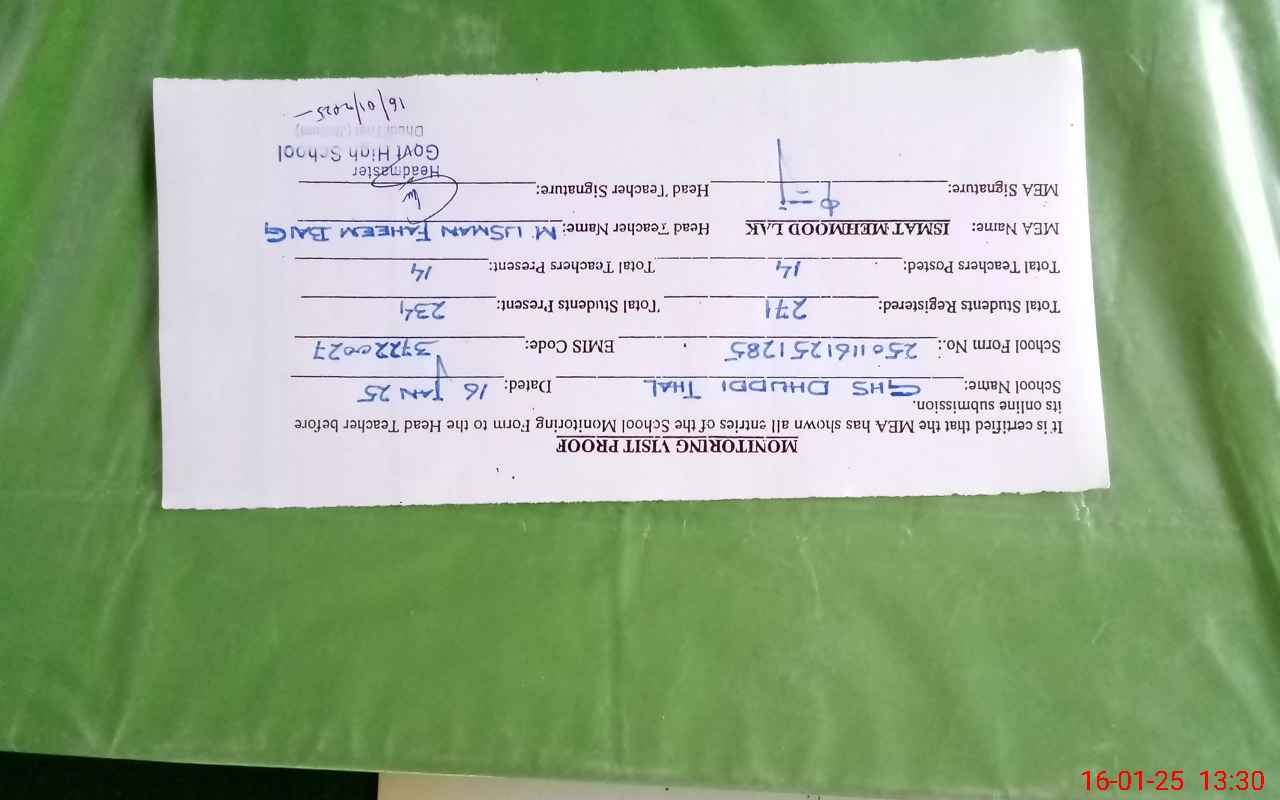 MONITORING VISIT PROOF
It is certified that the MEA has shown all entries of the School Monitoring Form to the Head Teacher before
its online submission.
School Name: GHS DHUDDI THAL Dated: 16 JAN 25
School Form No.: 2501161251285 EMIS Code: 37220027
Total Students Registered: 271 Total Students Present: 234
Total Teachers Posted: 14 Total Teachers Present: 14
MEA Name: ISMAT MEHMOOD LAK Head Teacher Name: M USMAN FAHEEM BAIG
MEA Signature: Head Teacher Signature:
Headmaster
Govt High School
Dhudi Thal
16/01/2025
16-01-25 13:30